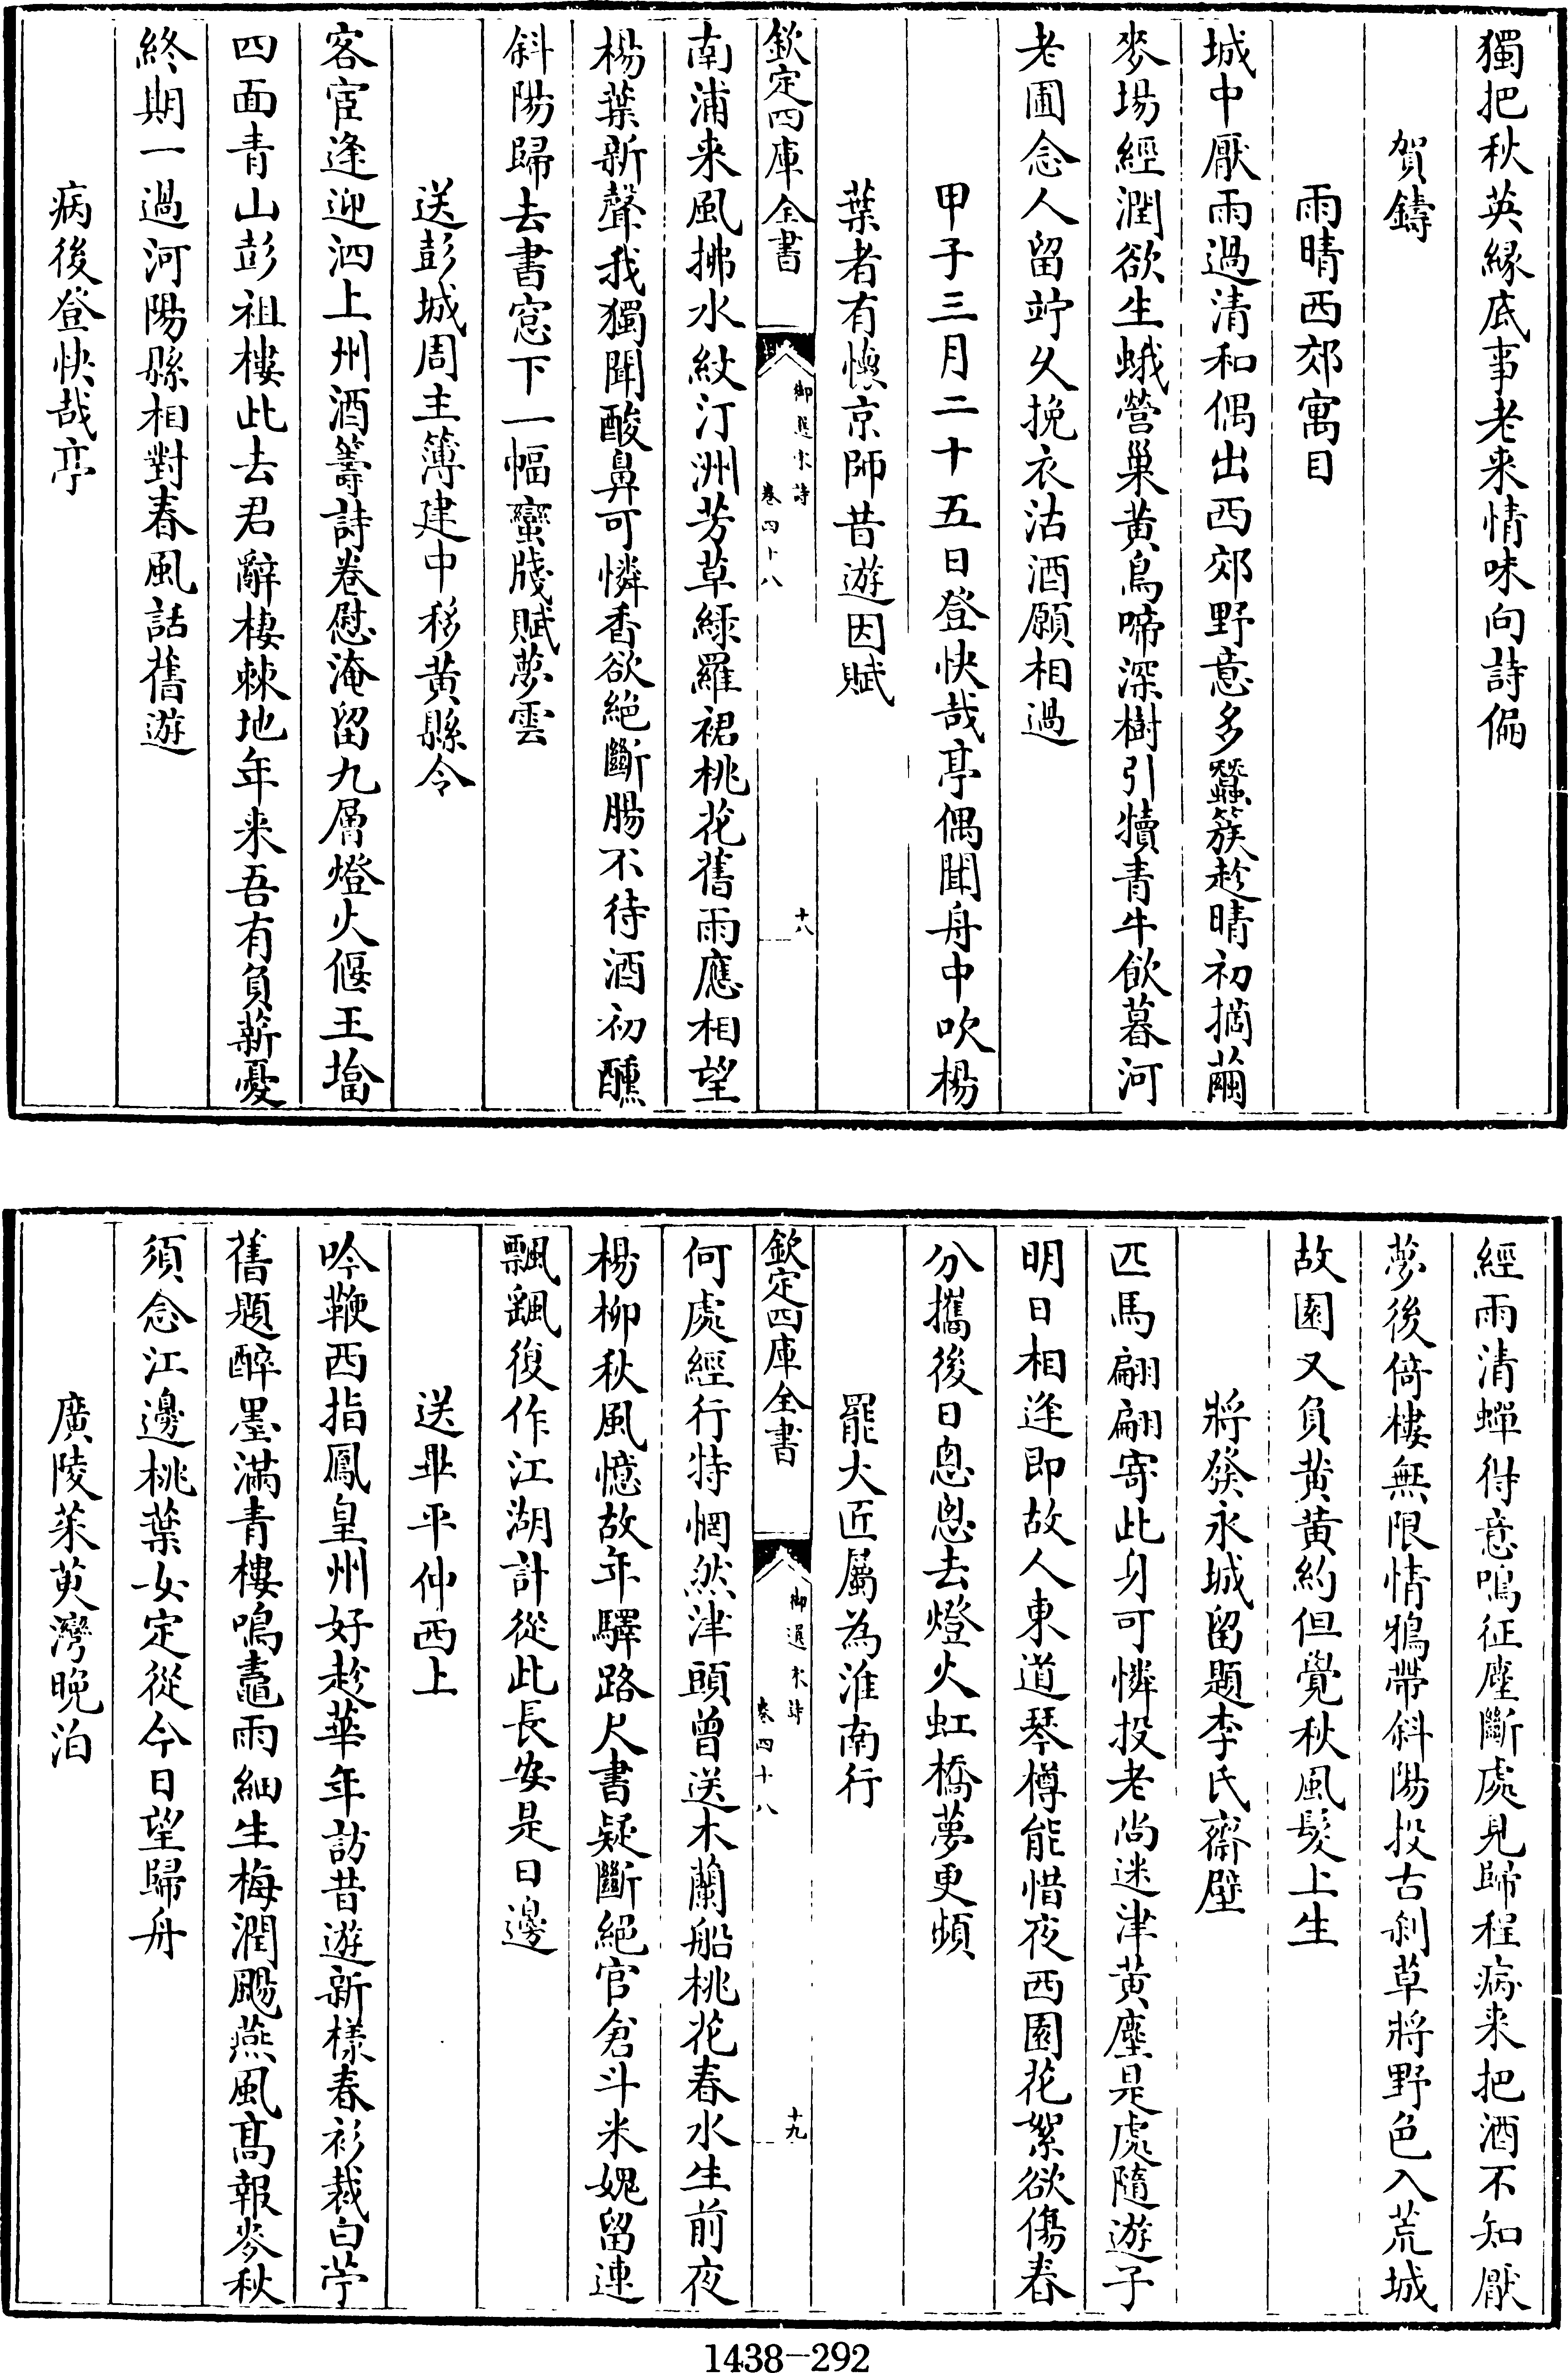 獨把秋英緣底事老來情味向詩偏
賀鑄
雨晴西郊寓目
城中厭雨過清和偶出西郊野意多蠶簇趁晴初摘繭
麥場經潤欲生蛾營巢黃鳥啼深樹引犢青牛飲暮河
老圃念人留竚久挽衣沽酒願相過
甲子三月二十五日登快哉亭偶聞舟中吹楊
葉者有懷京師昔遊因賦
欽定四庫全書
御選宋詩
卷四十八
十八
南浦来風拂水紋汀洲芳草綠羅裙桃花舊雨應相望
楊葉新聲我獨聞酸鼻可憐香欲絕斷腸不待酒初醺
斜陽歸去書窓下一幅蠻牋賦夢雲
送彭城周主簿建中移黃縣令
客宦逢迎泗上州酒籌詩卷慰淹留九層燈火偃王墖
四面青山彭祖樓此去君辭棲棘地年来吾有負薪憂
終期一過河陽縣相對春風話舊遊
病後登快哉亭
經雨清蟬得意鳴征塵斷處見歸程病来把酒不知厭
夢後倚樓無限情鴉帶斜陽投古刹草將野色入荒城
故園又負黃黃約但覺秋風髮上生
將發永城留題李氏齋壁
匹馬翩翩寄此身可憐投老尚迷津黃塵是處隨遊子
明日相逢即故人東道琴樽能惜夜西園花絮欲傷春
分攜後日怱怱去燈火虹橋夢更頻
罷大匠屬為淮南行
欽定四庫全書
御選宋詩
卷四十八
十九
何處經行特惘然津頭曾送木蘭船桃花春水生前夜
楊柳秋風憶故年驛路尺書疑斷絕官倉斗米媿留連
飄飄復作江湖計從此長安是日邊
送畢平仲西上
吟鞭西指鳳皇州好趁華年訪昔遊新樣春衫裁白苧
舊題醉墨滿青樓鳴鼉雨細生梅潤颺燕風高報麥秋
須念江邊桃葉女定從今日望歸舟
廣陵茱萸灣晚泊
1438-292